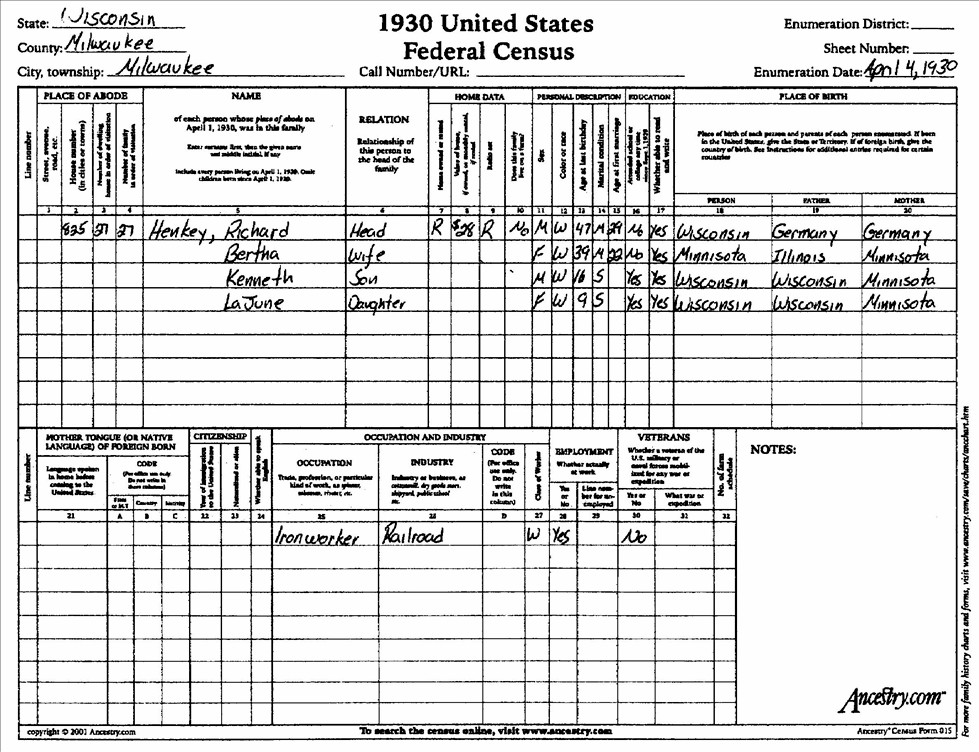 State: Wisconsin
1930 United States
Federal Census
Enumeration District:
County: Milwaukee
Sheet Number:
City, township: Milwaukee
Call Number/URL:
Enumeration Date: April 4, 1930
PLACE OF ABODE NAME HOME DATA PERSONAL DESCRIPTION EDUCATION PLACE OF BIRTH
Line number
Street, avenue, road, etc.
House number (in cities or towns)
Number of dwelling house in order of visitation
Number of family in order of visitation
of each person whose place of abode on
April 1, 1930, was in this family
Enter surname first, then the given name
and middle initial, if any
Include every person living on April 1, 1930. Omit
children born since April 1, 1930.
RELATION
Relationship of
this person to
the head of the
family
Home owned or rented
Value of home, if owned, or monthly rental, if rented
Radio set
Does this family live on a farm
Sex
Color or race
Age at last birthday
Marital condition
Age at first marriage
Attended school or college any time since
Whether able to read and write
Place of birth of each person and parents of each person enumerated. If born
in the United States, give the State or Territory. If of foreign birth, give the
country of birth. See Instructions for additional entries required for certain
countries
PERSON FATHER MOTHER
1 2 3 4 5 6 7 8 9 10 11 12 13 14 15 16 17 18 19 20
835 27 27 Henkey, Richard Head R $28 R No M W 47 M 29 No Yes Wisconsin Germany Germany
Bertha Wife F W 39 M 22 No Yes Minnisota Illinois Minnisota
Kenneth Son M W 16 S Yes Yes Wisconsin Wisconsin Minnisota
LaJune Daughter F W 9 S Yes Yes Wisconsin Wisconsin Minnisota
Line number
MOTHER TONGUE (OR NATIVE
LANGUAGE) OF FOREIGN BORN
Language spoken
in home before
coming to the
United States
CODE
(For office use only
Do not write in
these columns)
State or M.T. Country Nativity
CITIZENSHIP
Year of immigration to the United States
Naturalized or alien
Whether able to speak English
OCCUPATION AND INDUSTRY
OCCUPATION
Trade, profession, or particular
kind of work, as spinner,
salesman, riveter, etc.
INDUSTRY
Industry or business, as
cotton mill, dry goods store,
shipyard, public school
etc.
CODE
(For office
use only.
Do not
write
in this
column)
Class of Worker
EMPLOYMENT
Whether actually
at work
Yes
or
No
Line num-
ber for un-
employed
VETERANS
Whether a veteran of the
U.S. military or
naval forces mobil-
ized for any war or
expedition
Yes or
No
What war or
expedition
No. of farm schedule
NOTES:
21 A B C 22 23 24 25 26 D 27 28 29 30 31 32
Iron worker Railroad W Yes No
Ancestry.com
For more family history charts and forms, visit www.ancestry.com/save/charts/ancchart.htm
copyright © 2001 Ancestry.com
To search the census online, visit www.ancestry.com
Ancestry Census Form 015